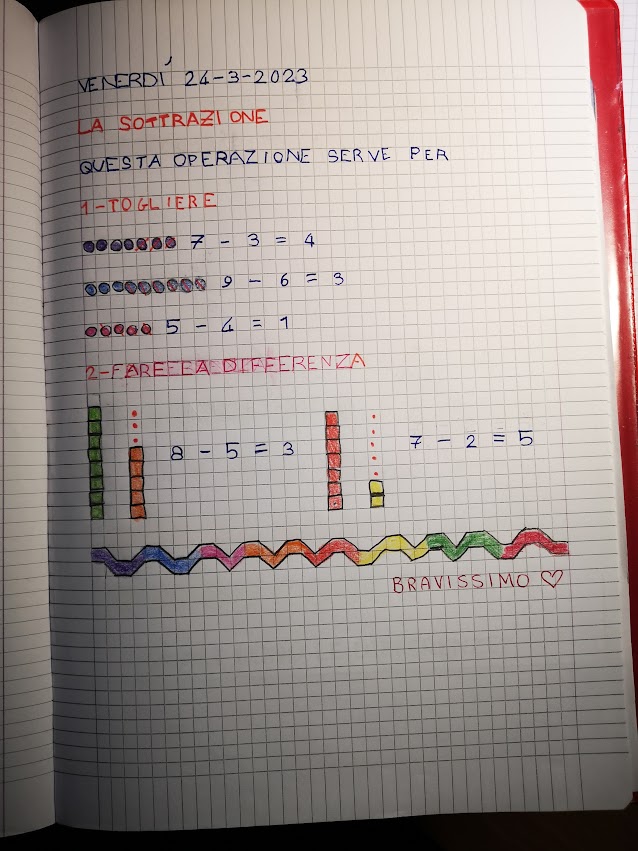 VENERDÍ 24-3-2023
LA SOTTRAZIONE
QUESTA OPERAZIONE SERVE PER
1-TOGLIERE
7 - 3 = 4
9 - 6 = 3
5 - 4 = 1
2-FARE LA DIFFERENZA
8 - 5 = 3
7 - 2 = 5
BRAVISSIMO ♡